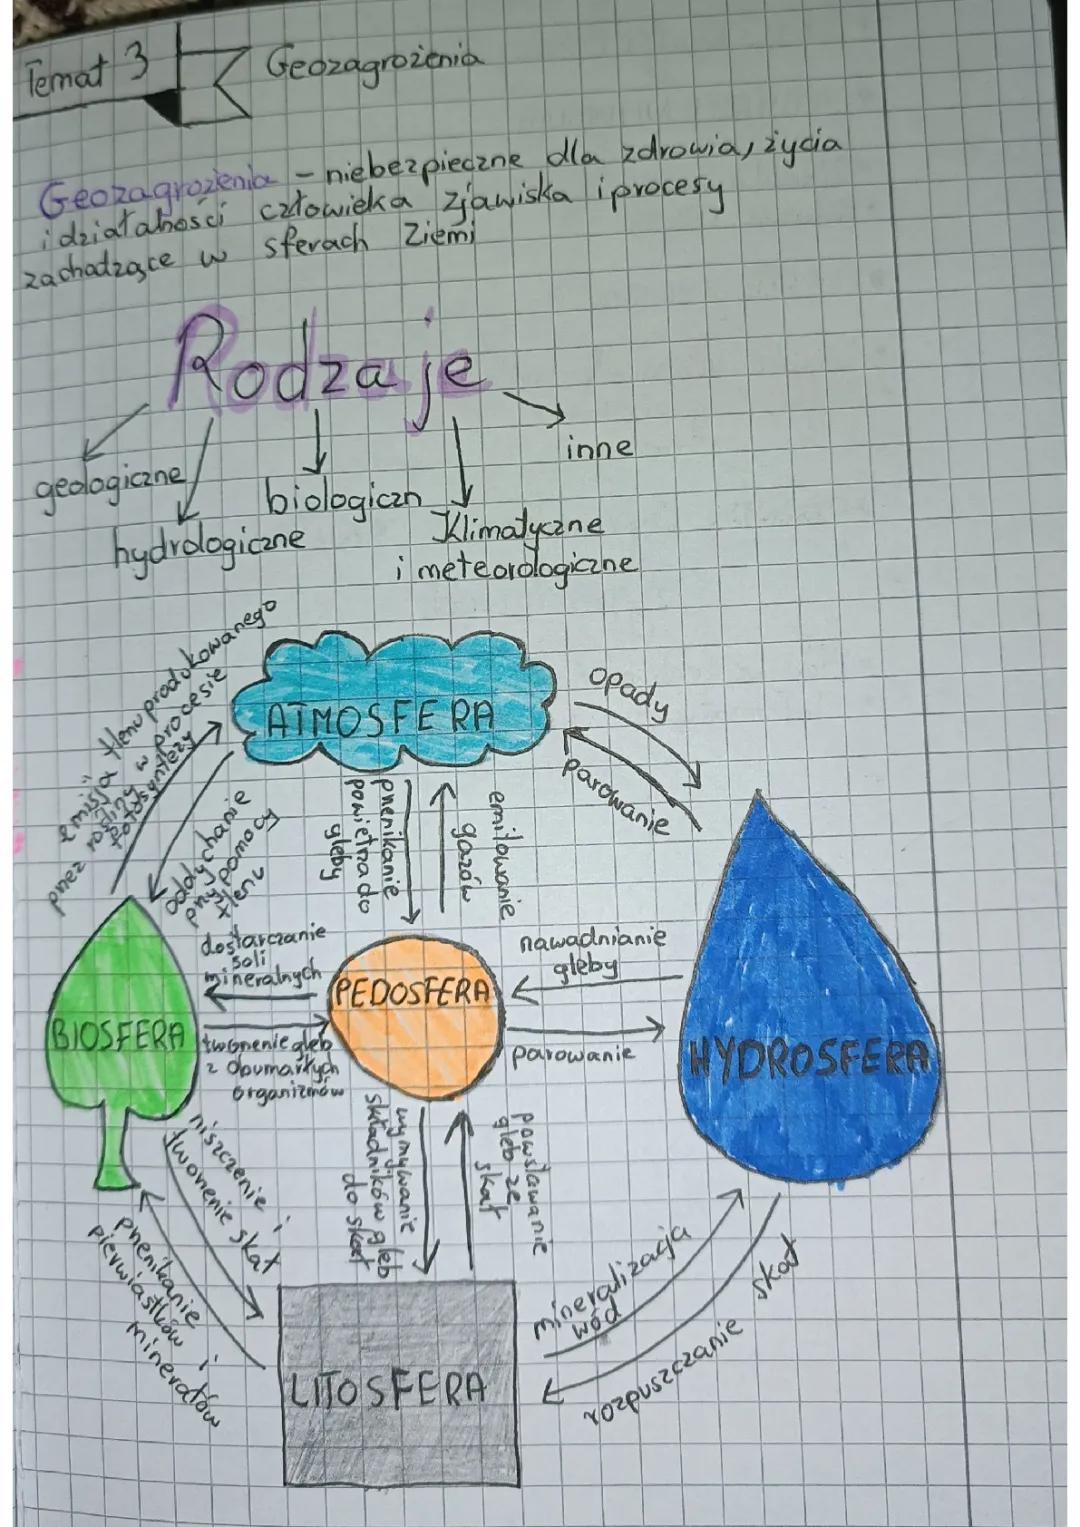 Temat 3
Geozagrożenia
Geozagrożenia - niebezpieczne dla zdrowia, życia
i działalności człowieka zjawiska i procesy
zachodzące w sferach Ziemi
Rodzaje
geologiczne
hydrologiczne
biologiczn
Klimatyczne
i meteorologiczne
inne
emisja tlenu produkowanego
przez rośliny w procesie
fotosyntezy
ATMOSFERA
opady
parowanie
oddychanie
przy pomocy
tlenu
przenikanie
powietrza do
gleby
emitowanie
gazów
dostarczanie
soli
mineralnych
PEDOSFERA
nawadnianie
gleby
BIOSFERA
tworzenie gleb
z obumarłych
organizmów
parowanie
HYDROSFERA
niszczenie i
tworzenie skał
przenikanie
pierwiastków i
minerałów
wymywanie
składników gleb
do skał
powstawanie
gleb ze
skał
LITOSFERA
mineralizacja
wód
rozpuszczanie skał